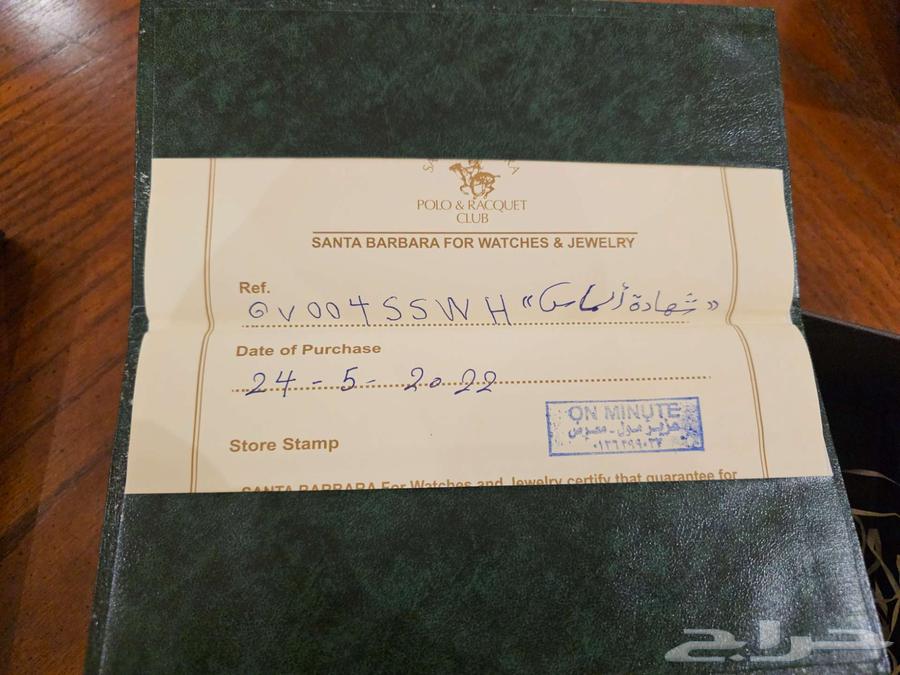 POLO & RACQUET
CLUB
SANTA BARBARA FOR WATCHES & JEWELRY
Ref.
GV004SSWH «شهادة ألماس»
Date of Purchase
24-5-2022
ON MINUTE
Store Stamp
SANTA BARBARA For Watches and Jewelry certify that guarantee for
حراج